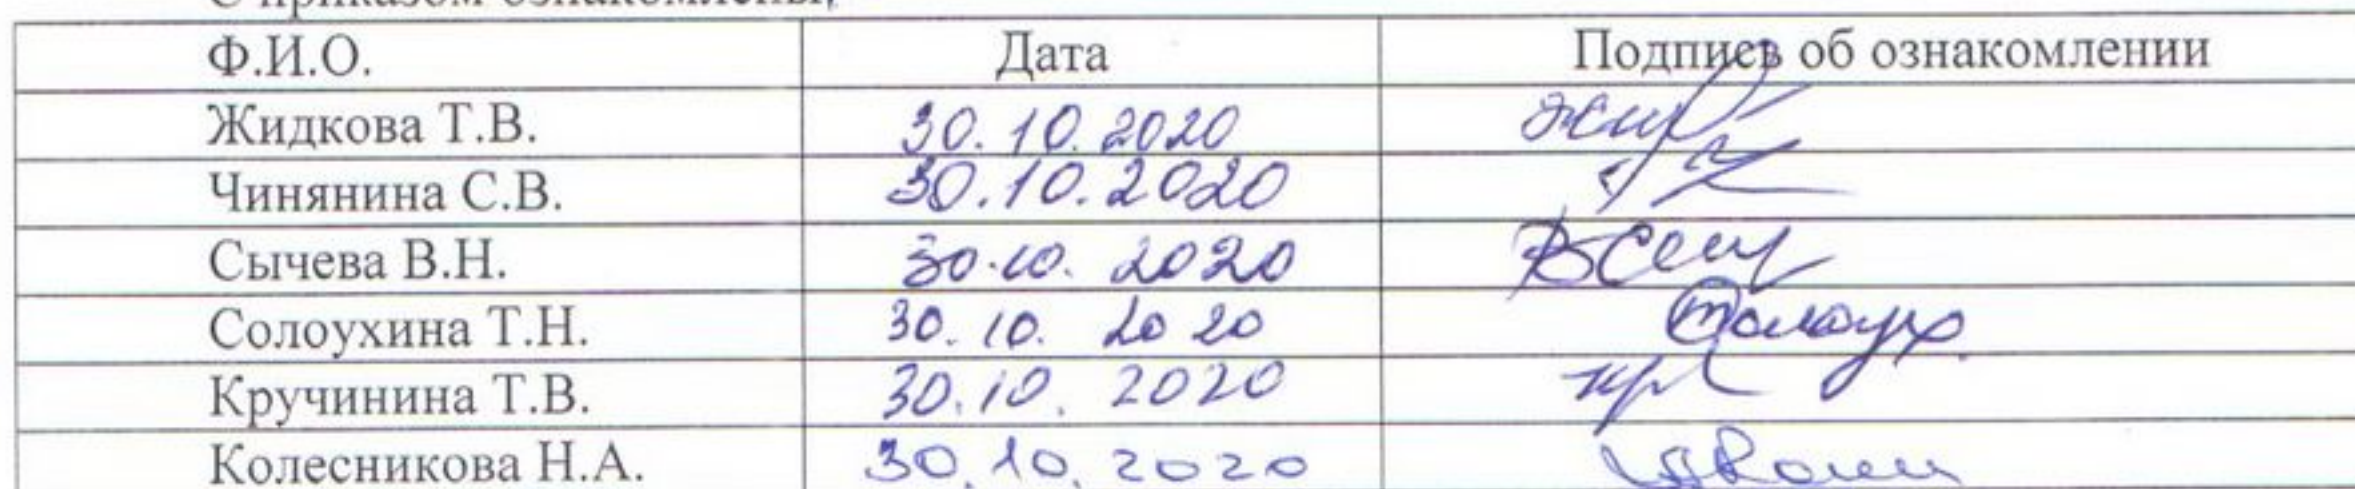 С приказом ознакомлены:
Ф.И.О. Дата Подпись об ознакомлении
Жидкова Т.В. 30.10.2020
Чинянина С.В. 30.10.2020
Сычева В.Н. 30.10.2020
Солоухина Т.Н. 30.10.2020
Кручинина Т.В. 30.10.2020
Колесникова Н.А. 30.10.2020